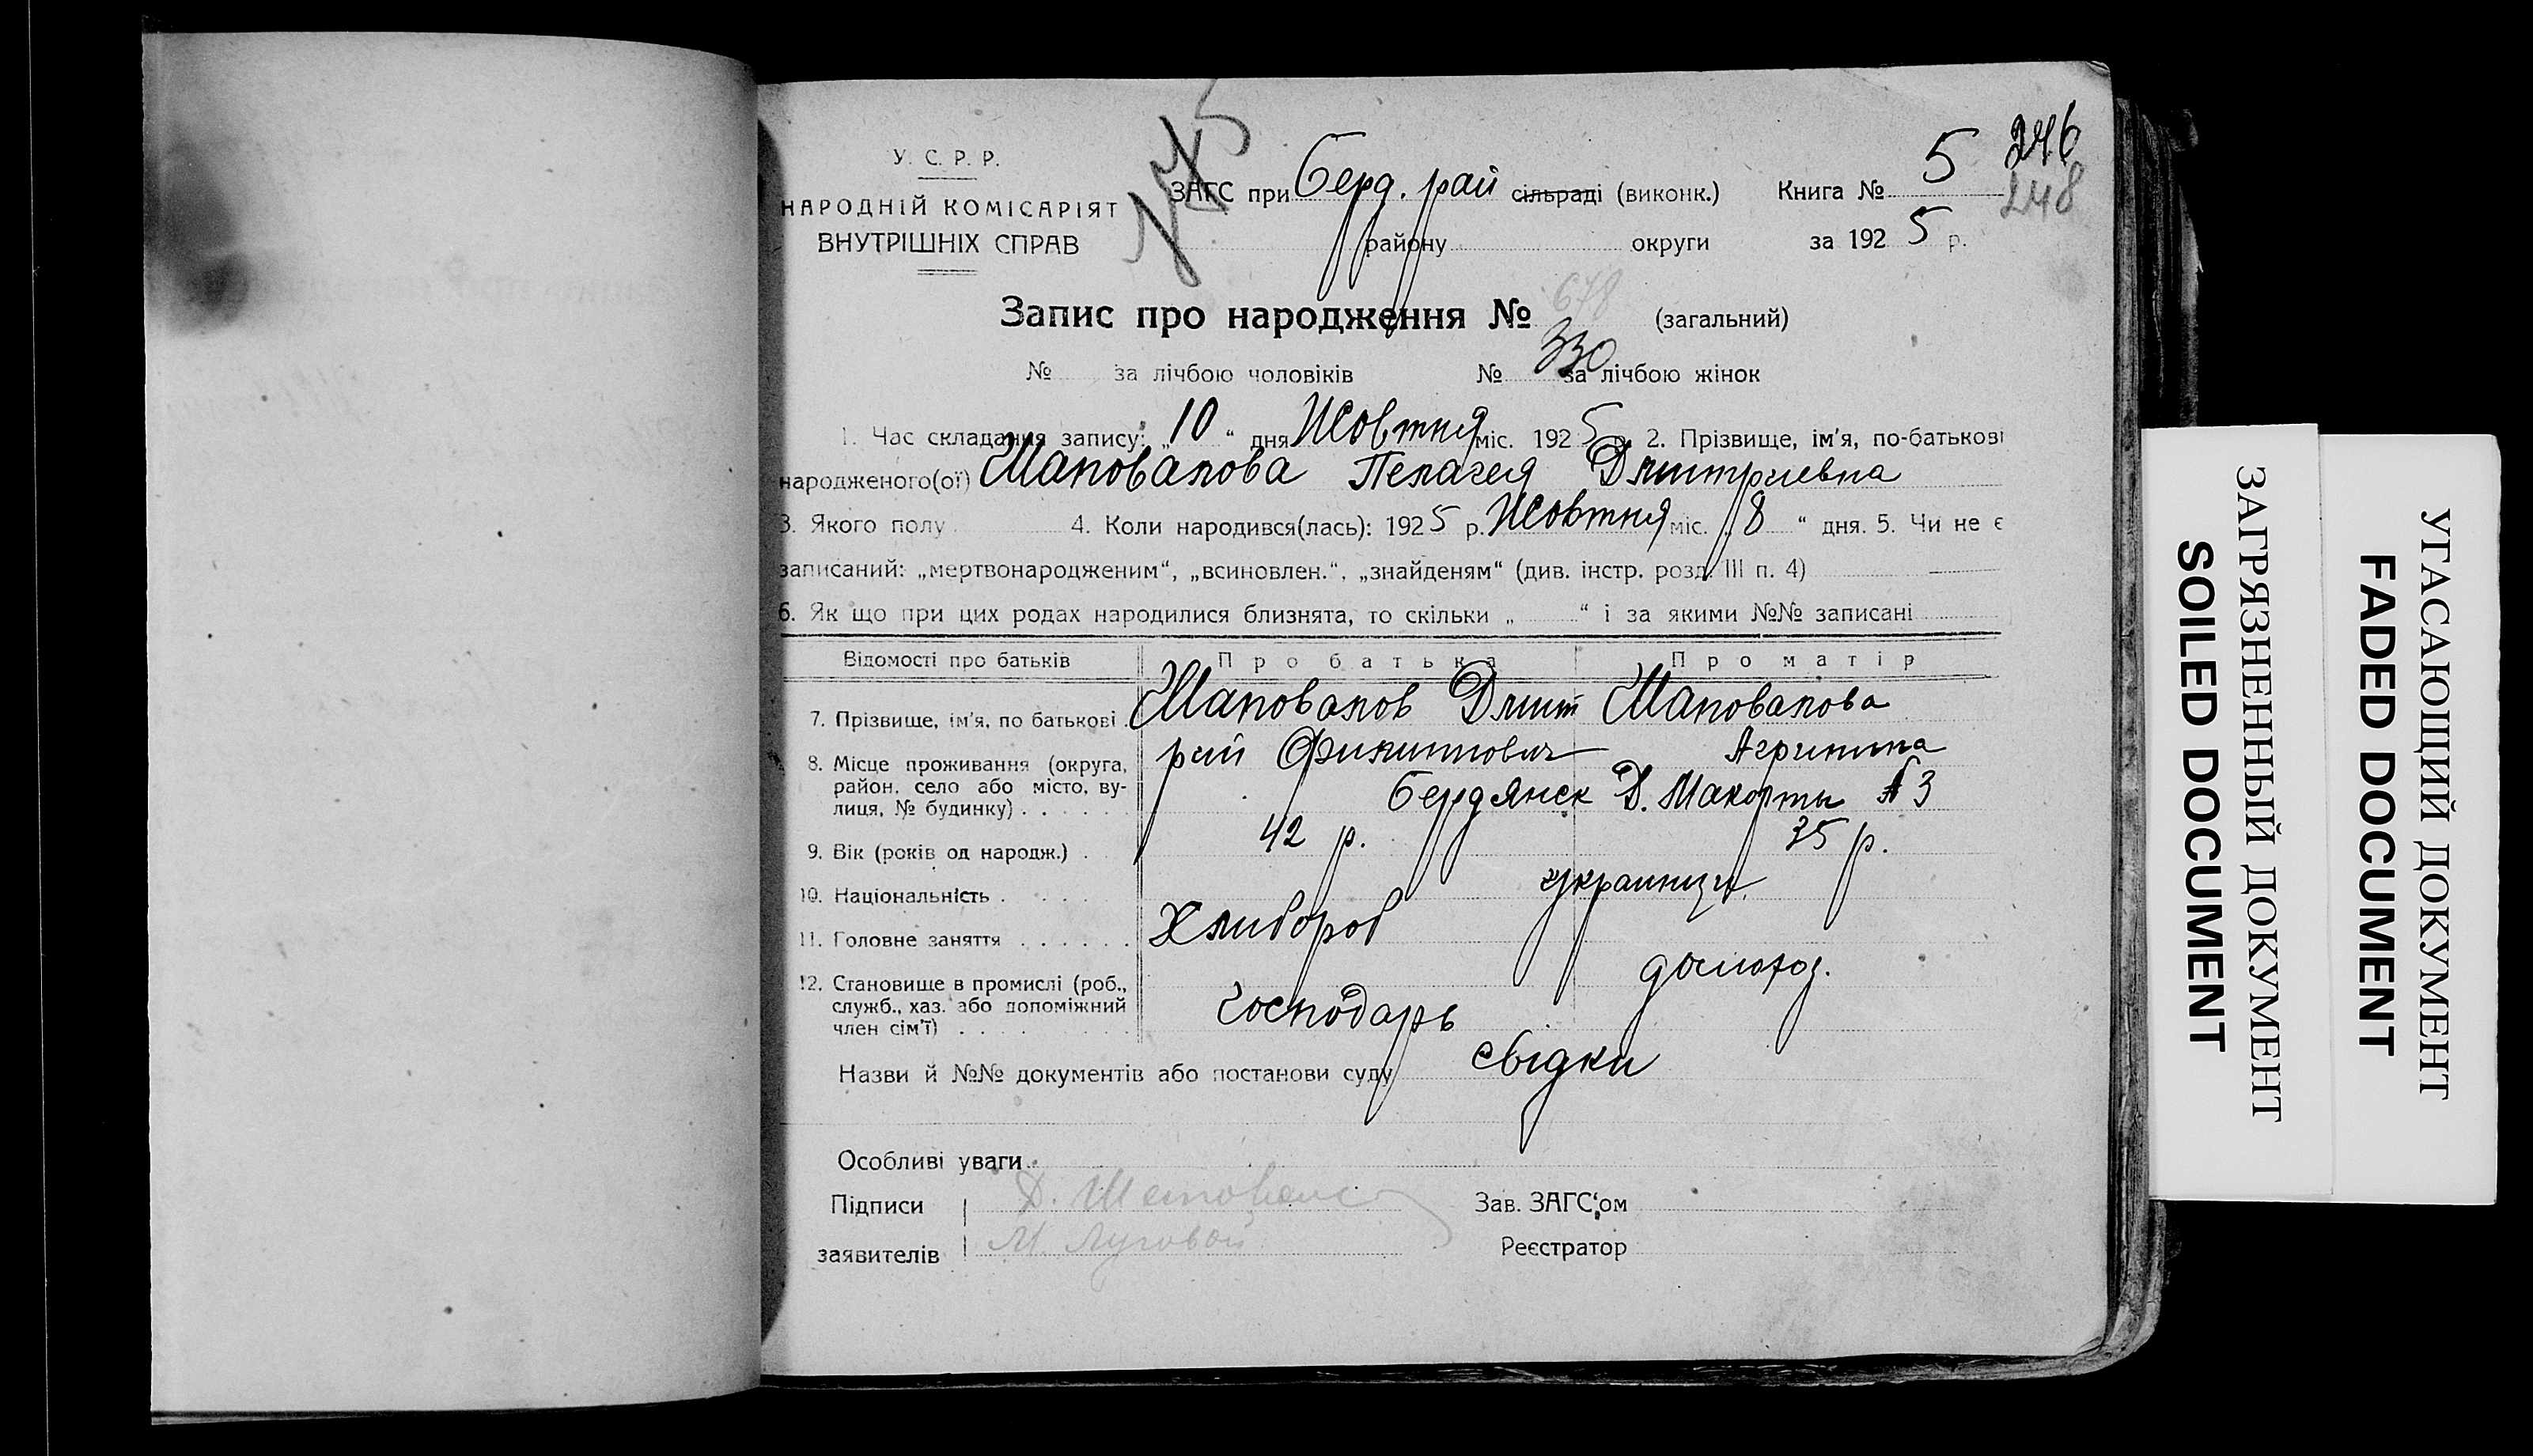 246
248
У. С. Р. Р.
НАРОДНІЙ КОМІСАРІЯТ
ВНУТРІШНІХ СПРАВ
ЗАГС при Берд. рай сільраді (виконк.) Книга № 5
району округи за 1925 р.
Запис про народження № 678 (загальний)
№ за лічбою чоловіків № 330 за лічбою жінок
1. Час складання запису: „10“ дня Жовтня міс. 1925 р. 2. Прізвище, ім'я, по-батькові
народженого(ої) Шаповалова Пелагея Дмитриевна
3. Якого полу 4. Коли народився(лась): 1925 р. Жовтня міс. „8“ дня. 5. Чи не є
записаний: „мертвонародженим“, „всиновлен.“, „знайденям“ (див. інстр. розд. III п. 4) —
6. Як що при цих родах народилися близнята, то скільки „ “ і за якими №№ записані
Відомості про батьків Про батька Про матір
7. Прізвище, ім'я, по батькові Шаповалов Дмит Шаповалова
рий Филиппович Агрипина
8. Місце проживання (округа,
район, село або місто, ву-
лиця, № будинку) . . . . . Бердянск Д. Макорты № 3
9. Вік (років од народж.) . 42 р. 35 р.
10. Національність . . . . . украинци
11. Головне заняття . . . . . . Хлибороб
домохоз.
12. Становище в промислі (роб.,
служб., хаз. або допоміжний
член сім'ї) . . . . . Господарь
Назви й №№ документів або постанови суду свідки
Особливі уваги
Підписи Д. Шаповалов Зав. ЗАГС'ом
заявителів М. Луговой Реєстратор
ЗАГРЯЗНЕННЫЙ ДОКУМЕНТ
SOILED DOCUMENT
УГАСАЮЩИЙ ДОКУМЕНТ
FADED DOCUMENT